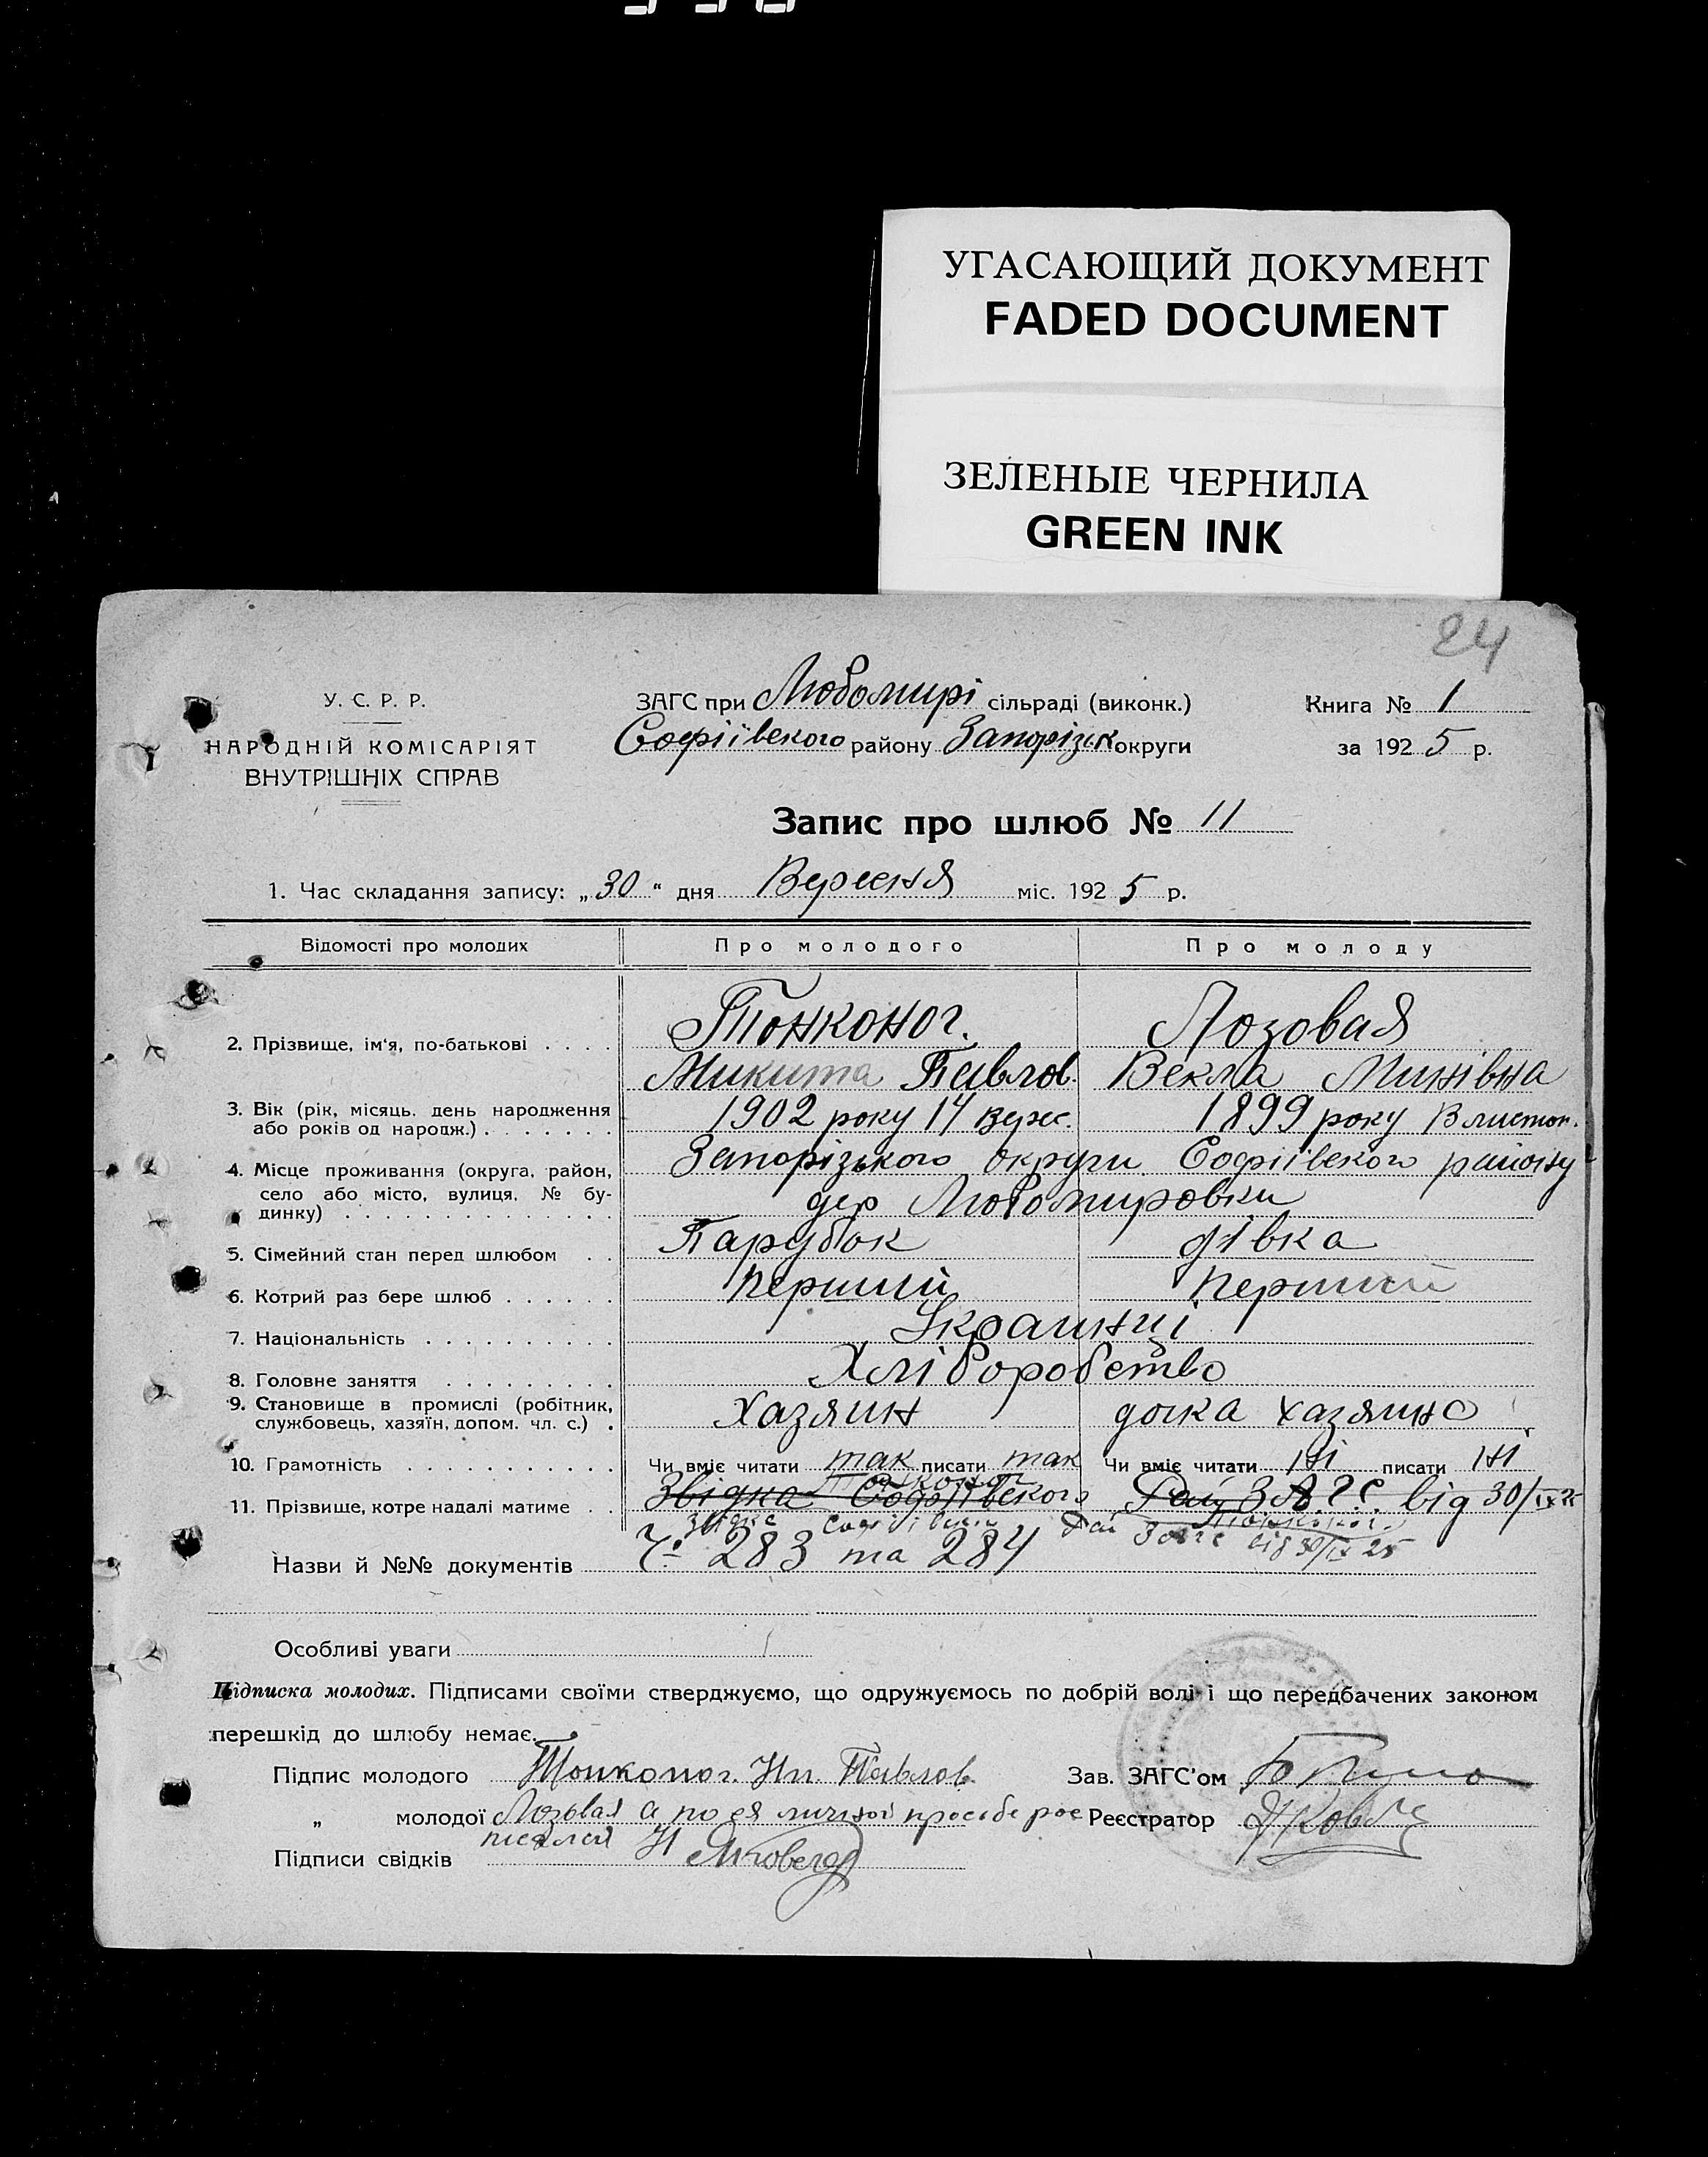 УГАСАЮЩИЙ ДОКУМЕНТ
FADED DOCUMENT
ЗЕЛЕНЫЕ ЧЕРНИЛА
GREEN INK
24
У. С. Р. Р.
НАРОДНІЙ КОМІСАРІЯТ
ВНУТРІШНІХ СПРАВ
ЗАГС при Любомирі сільраді (виконк.)
Софіївского району Запорізьк округи
Книга № 1
за 1925 р.
Запис про шлюб № 11
1. Час складання запису: „30“ дня Вересня міс. 1925 р.
Відомості про молодих Про молодого Про молоду
2. Прізвище, ім'я, по-батькові . . . . Тонконог. Лозовая
Микита Павлов. Векла Минівна
3. Вік (рік, місяць. день народження або років од народж.) . . . . . . . 1902 року 14 верес. 1899 року 13 листоп.
4. Місце проживання (округа, район, село або місто, вулиця, № будинку) . . . . . . . . . . . . . Запорізького округи Софіївского району
дер Любомировки
5. Сімейний стан перед шлюбом . . Парубок дівка
6. Котрий раз бере шлюб . . . . . . перший перший
7. Національність . . . . . . . . . . Українці
8. Головне заняття . . . . . . . . . Хліборобство
9. Становище в промислі (робітник, службовець, хазяїн, допом. чл. с.) . Хазяин дочка хазяина
10. Грамотність . . . . . . . . . . . Чи вміє читати так писати так Чи вміє читати ні писати ні
11. Прізвище, котре надалі матиме . Тонконог
Звідка Софіївского Рай ЗАГС від 30/IX 25
Звідка Софіївск Рай Загс від 30/IX 25
Назви й №№ документів Ч: 283 та 284
Особливі уваги
Підписка молодих. Підписами своїми стверджуємо, що одружуємось по добрій волі і що передбачених законом
перешкід до шлюбу немає.
Підпис молодого Тонконог. Нп. Павлов
Зав. ЗАГС'ом
„ молодої Лозовая а по ея личной просьбе рос
писался Н Яковець
Реєстратор Яковець
Підписи свідків